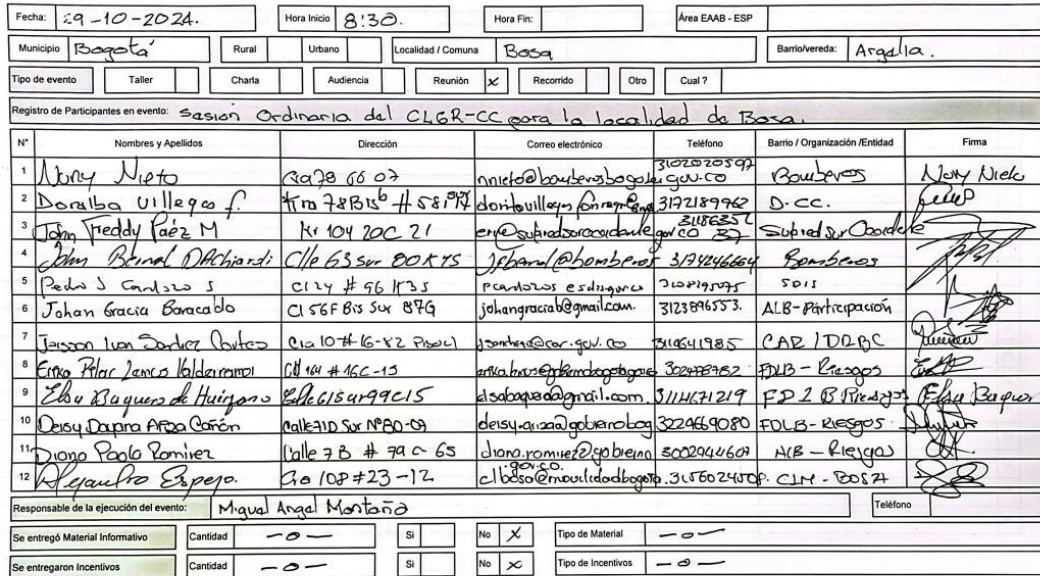 Fecha: 29-10-2024. Hora Inicio 8:30. Hora Fin: Área EAAB - ESP
Municipio Bogotá Rural Urbano Localidad / Comuna Bosa Barrio/vereda: Argelia.
Tipo de evento Taller Charla Audiencia Reunión X Recorrido Otro Cual ?
Registro de Participantes en evento: Sesión Ordinaria del CLGR-CC para la localidad de Bosa.
N° Nombres y Apellidos Dirección Correo electrónico Teléfono Barrio / Organización /Entidad Firma
1 Nury Nieto Cra 78 66 07 nnieto@bomberosbogota.gov.co 3102020597 Bomberos Nury Nieto
2 Doralba Villegas f. Kra 78Bis 3172189962 D.CC.
3 John Freddy Páez M Kr 104 20C 21 Subred Sur Occidente
4 John Bernal DAchiardi Clle 63 sur 80K75 Jsbernal@bomberos 3174246664 Bomberos
5 Pedro J Cardozo S
6 Johan Gracia Baracaldo Cl 56F Bis Sur 87G johangraciab@gmail.com. 3123896553. ALB-Participación
7 Jeisson Ivan Sanchez Cra 10 # 16-82 Piso jsanchez@car.gov.co 3119641985 CAR / DRBC
8 Erika Pilar # 16C-15 FDLB - Riesgos
9 Elsa Baquero de Calle 61sur99C15 3114671219 Riesgos Elsa Baquer
10 Deisy Dayana Ariza Cañón Calle 71D Sur N°80-09 deisy.ariza@gobiernobog 3224669080 FDLB-Riesgos
11 Diana Paola Ramirez Calle 7B # 79C-65 diana.ramirez@gobierno .gov.co. 3002944609 ALB - Riesgos
12 Alejandro Espejo. Cra 108 #23-12 clbosa@movilidadbogota. CLM - BOSA
Responsable de la ejecución del evento: Miguel Angel Montaño Teléfono
Se entregó Material Informativo Cantidad -0- Si No X Tipo de Material -0-
Se entregaron Incentivos Cantidad -0- Si No X Tipo de Incentivos -0-